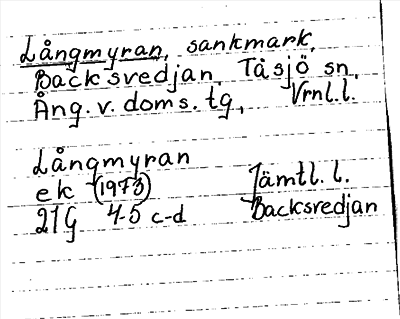 Långmyran, sankmark,
Backsvedjan, Tåsjö sn,
Ång. v. doms. tg, Vrnl. l.
Långmyran
ek (1973) Jämtl. l.
21G 4-5 c-d Backsvedjan